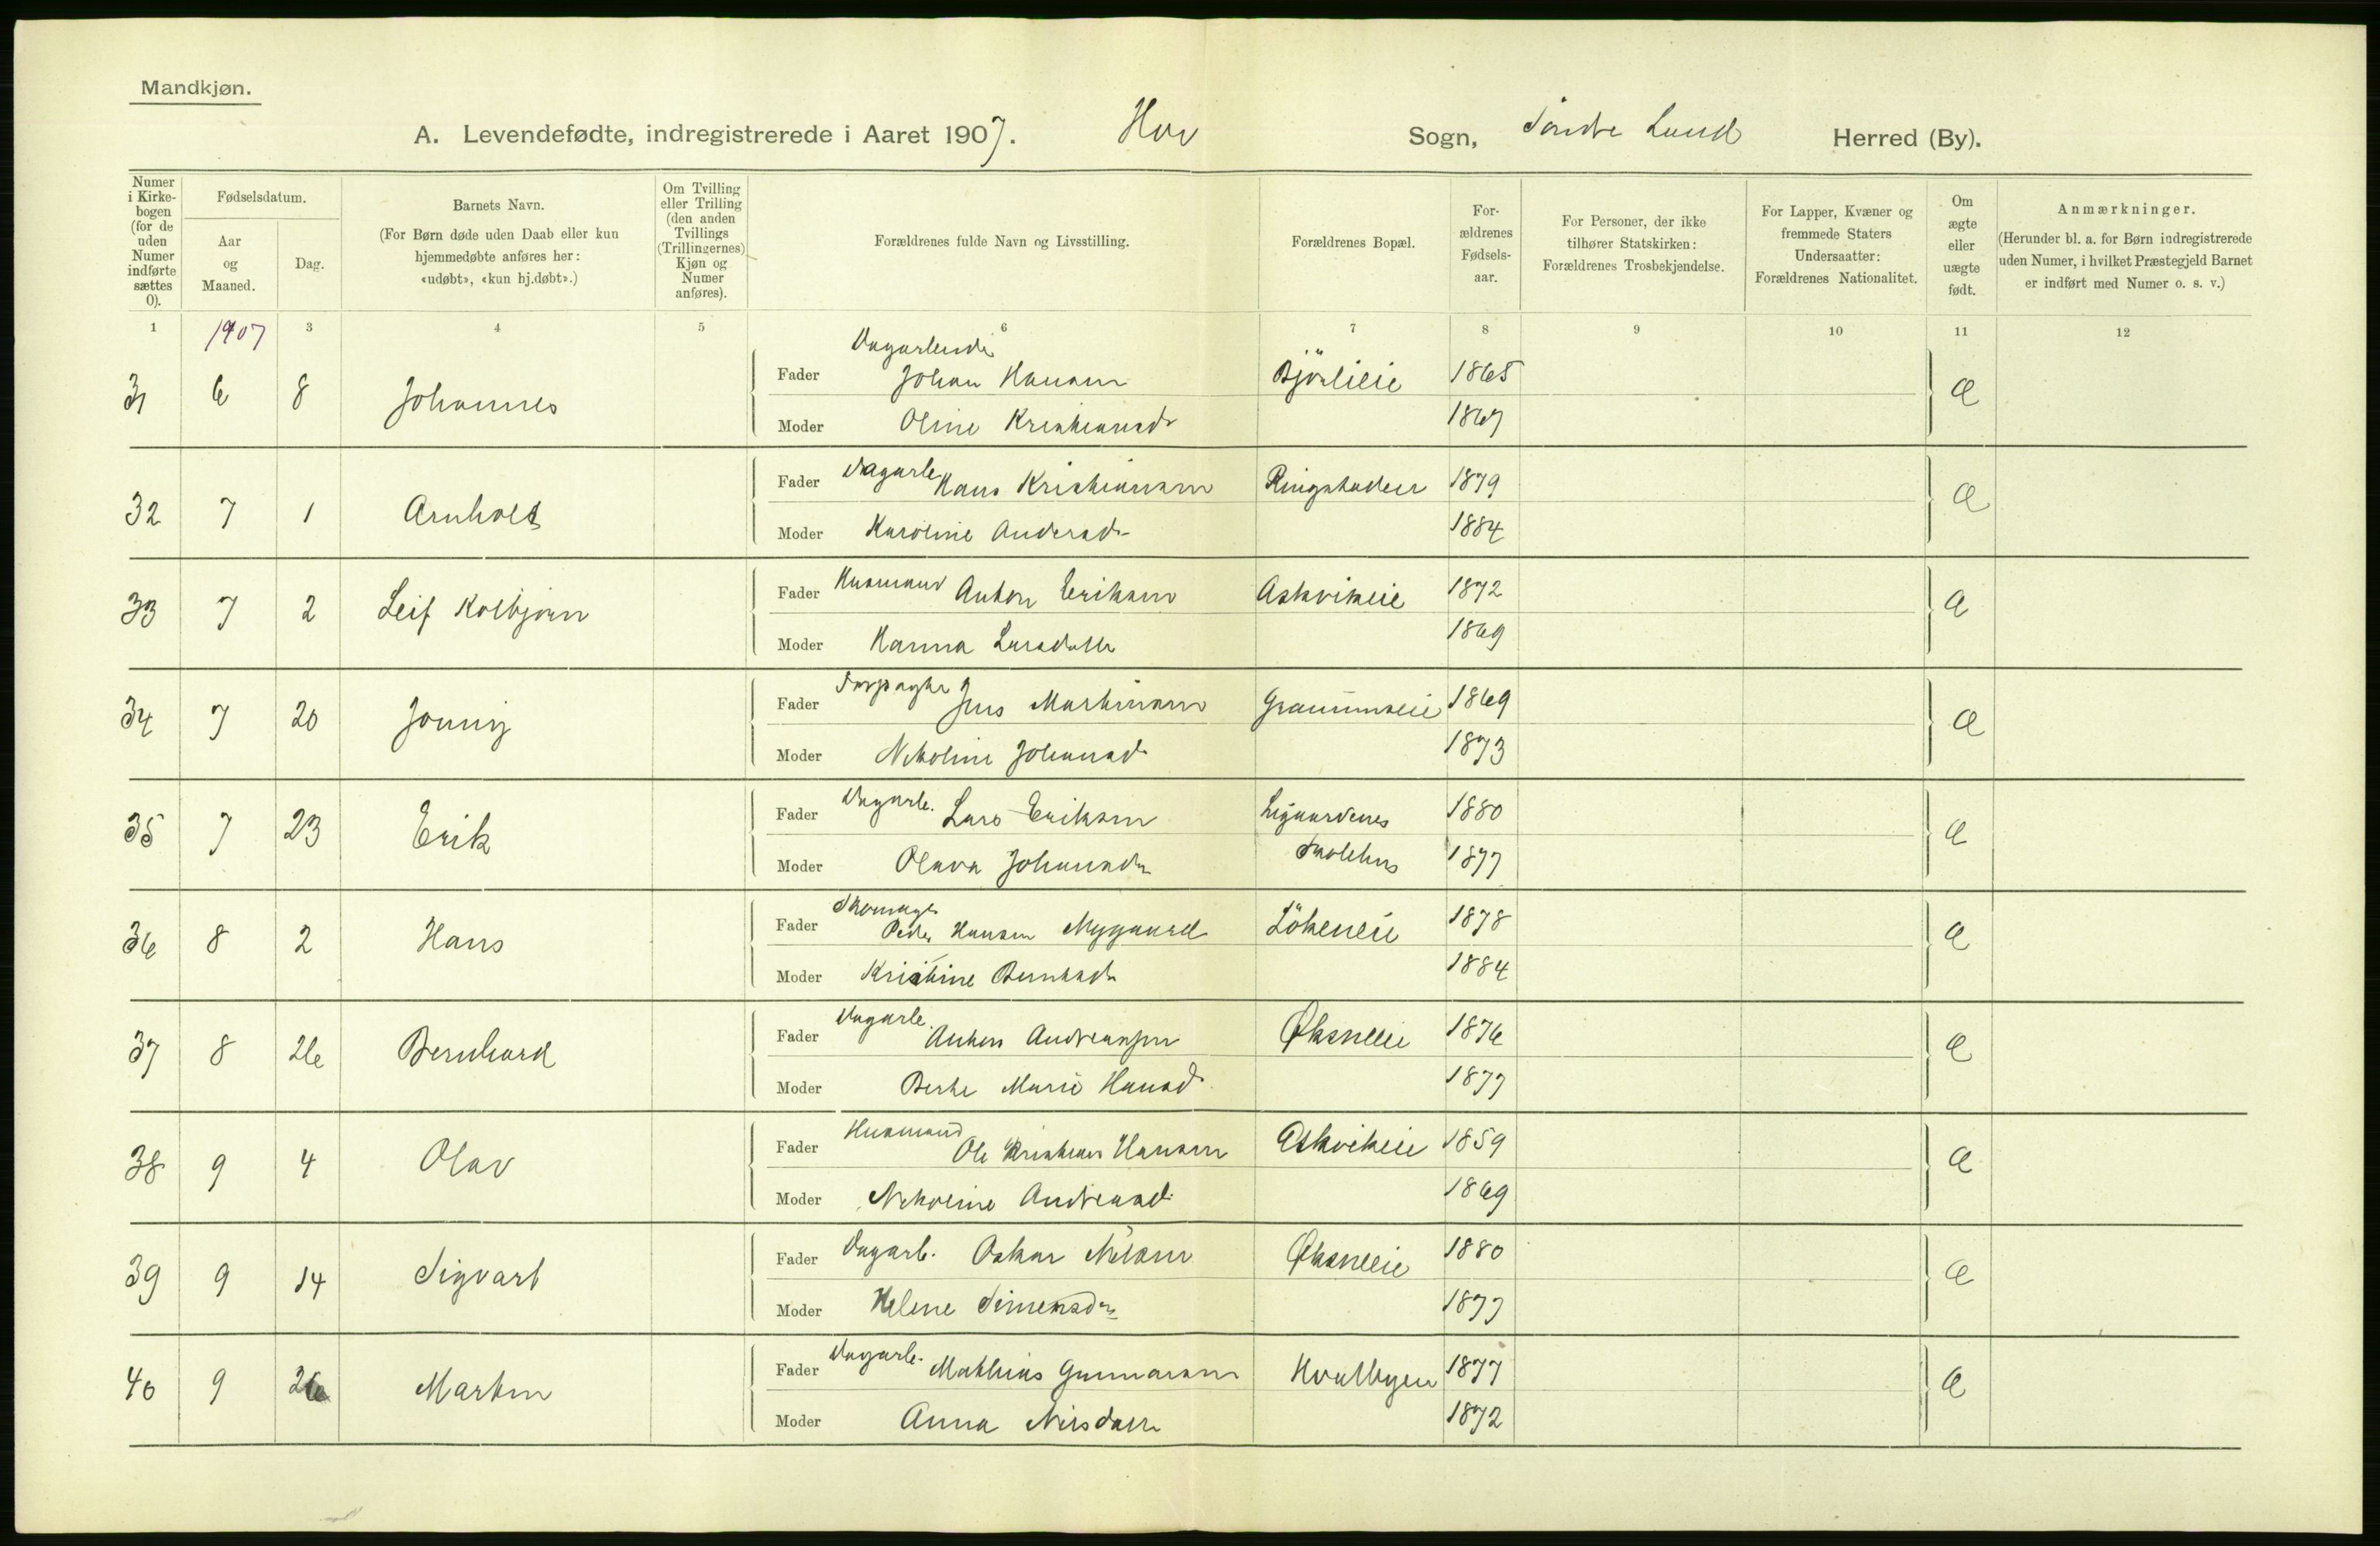 Mandkjøn.
A. Levendefødte, indregistrerede i Aaret 1907. Hov Sogn, Söndre Land Herred (By).
Numer i Kirke-bogen (for de uden Numer indførte sættes 0).
Fødselsdatum.
Aar og Maaned.
Dag.
Barnets Navn.
(For Børn døde uden Daab eller kun hjemmedøbte anføres her: «udøbt», «kun hj.døbt».)
Om Tvilling eller Trilling (den anden Tvillings (Trillingernes) Kjøn og Numer anføres).
Forældrenes fulde Navn og Livsstilling.
Forældrenes Bopæl.
For-ældrenes Fødsels-aar.
For Personer, der ikke tilhører Statskirken: Forældrenes Trosbekjendelse.
For Lapper, Kvæner og fremmede Staters Undersaatter: Forældrenes Nationalitet.
Om ægte eller uægte født.
Anmærkninger.
(Herunder bl. a. for Børn indregistrerede uden Numer, i hvilket Præstegjeld Barnet er indført med Numer o. s. v.)
1 1907 3 4 5 6 7 8 9 10 11 12
31 6 8 Johannes Fader Dagarbeider Johan Hansen Björlieie 1865 Æ
Moder Oline Kristiansd. 1867
32 7 1 Arnholt Fader Dagarb. Hans Kristiansen Ringstadeie 1879 Æ
Moder Karoline Andersd. 1884
33 7 2 Leif Kolbjörn Fader Husmand Anton Eriksen Askvikeie 1872 Æ
Moder Hanna Larsdatter 1869
34 7 20 Jonny Fader Jens Martinsen 1869 Æ
Moder Nikoline Johansd. 1873
35 7 23 Erik Fader Dagarb. Lars Eriksen 1880 Æ
Moder Olava Johansdr. Skolehus 1877
36 8 2 Hans Fader Skomager Peder Hansen Nygaard Lökeneie 1878 Æ
Moder Kristine Berntsdr. 1884
37 8 26 Bernhard Fader Dagarb. Anton Andreassen Øksneeie 1876 Æ
Moder Berte Marie Hansd. 1877
38 9 4 Olav Fader Husmand Ole Kristian Hansen Askvikeie 1859 Æ
Moder Nikoline Andreasd. 1869
39 9 14 Sigvart Fader Dagarb. Oskar Nilsen Øksneeie 1880 Æ
Moder Helene Simensdr. 1877
40 9 26 Martin Fader Dagarb. Mathias Gunnarsen 1877 Æ
Moder Anna Nilsdatter 1872